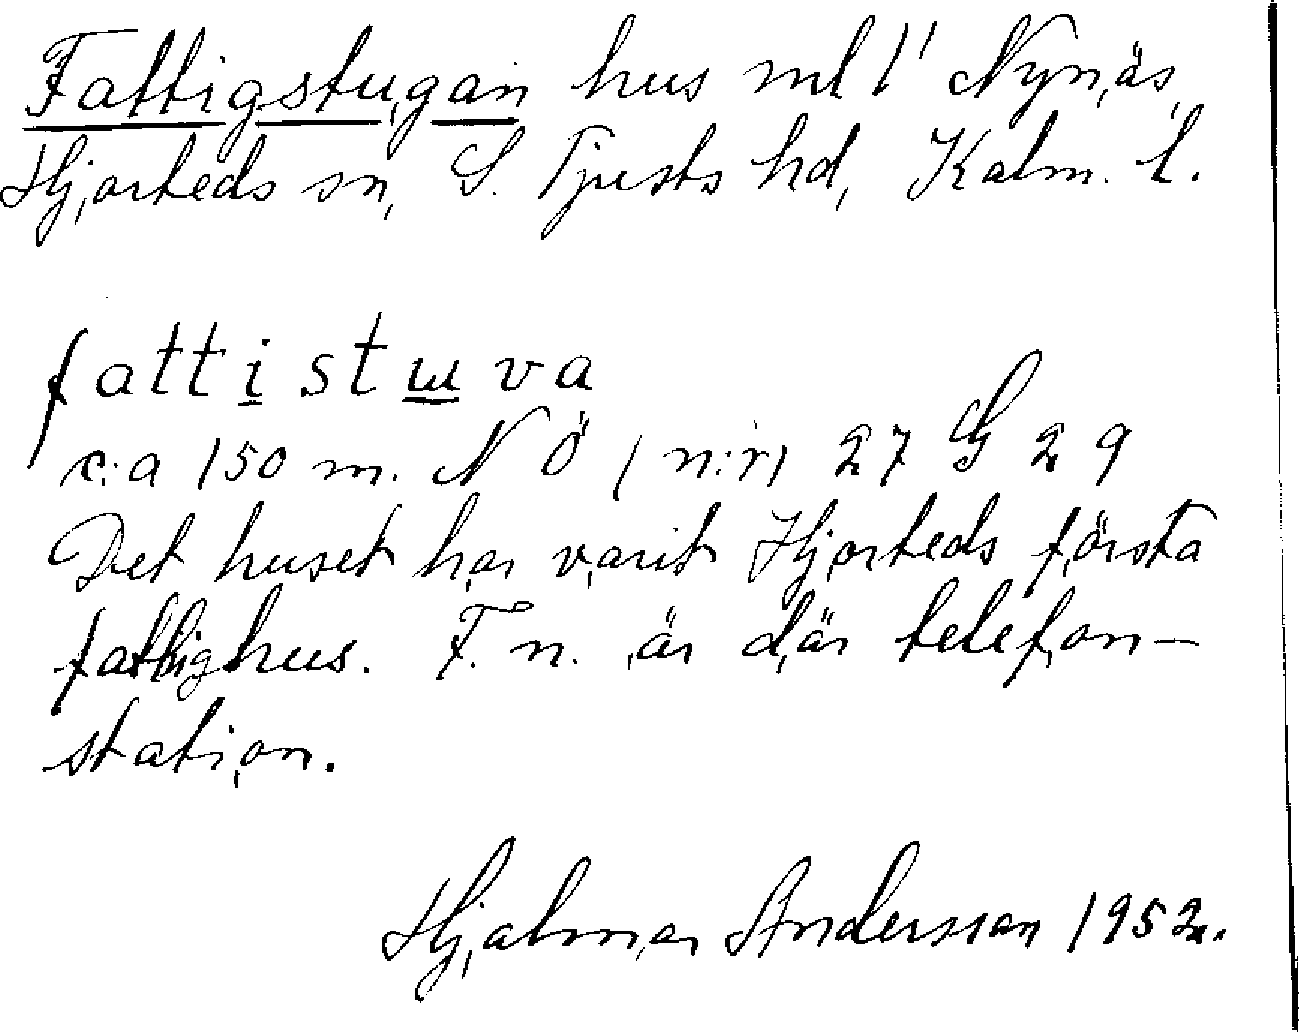 Fattigstugan hus ml 1' Nynäs,
Hjorteds sn, S. Tjusts hd, Kalm. l.
fattistɯva
c:a 150 m. N Ö (n:r) 27 G 29
Det huset har varit Hjorteds första
fattighus. F. n. är där telefon-
station.
Hjalmar Andersson 1952.